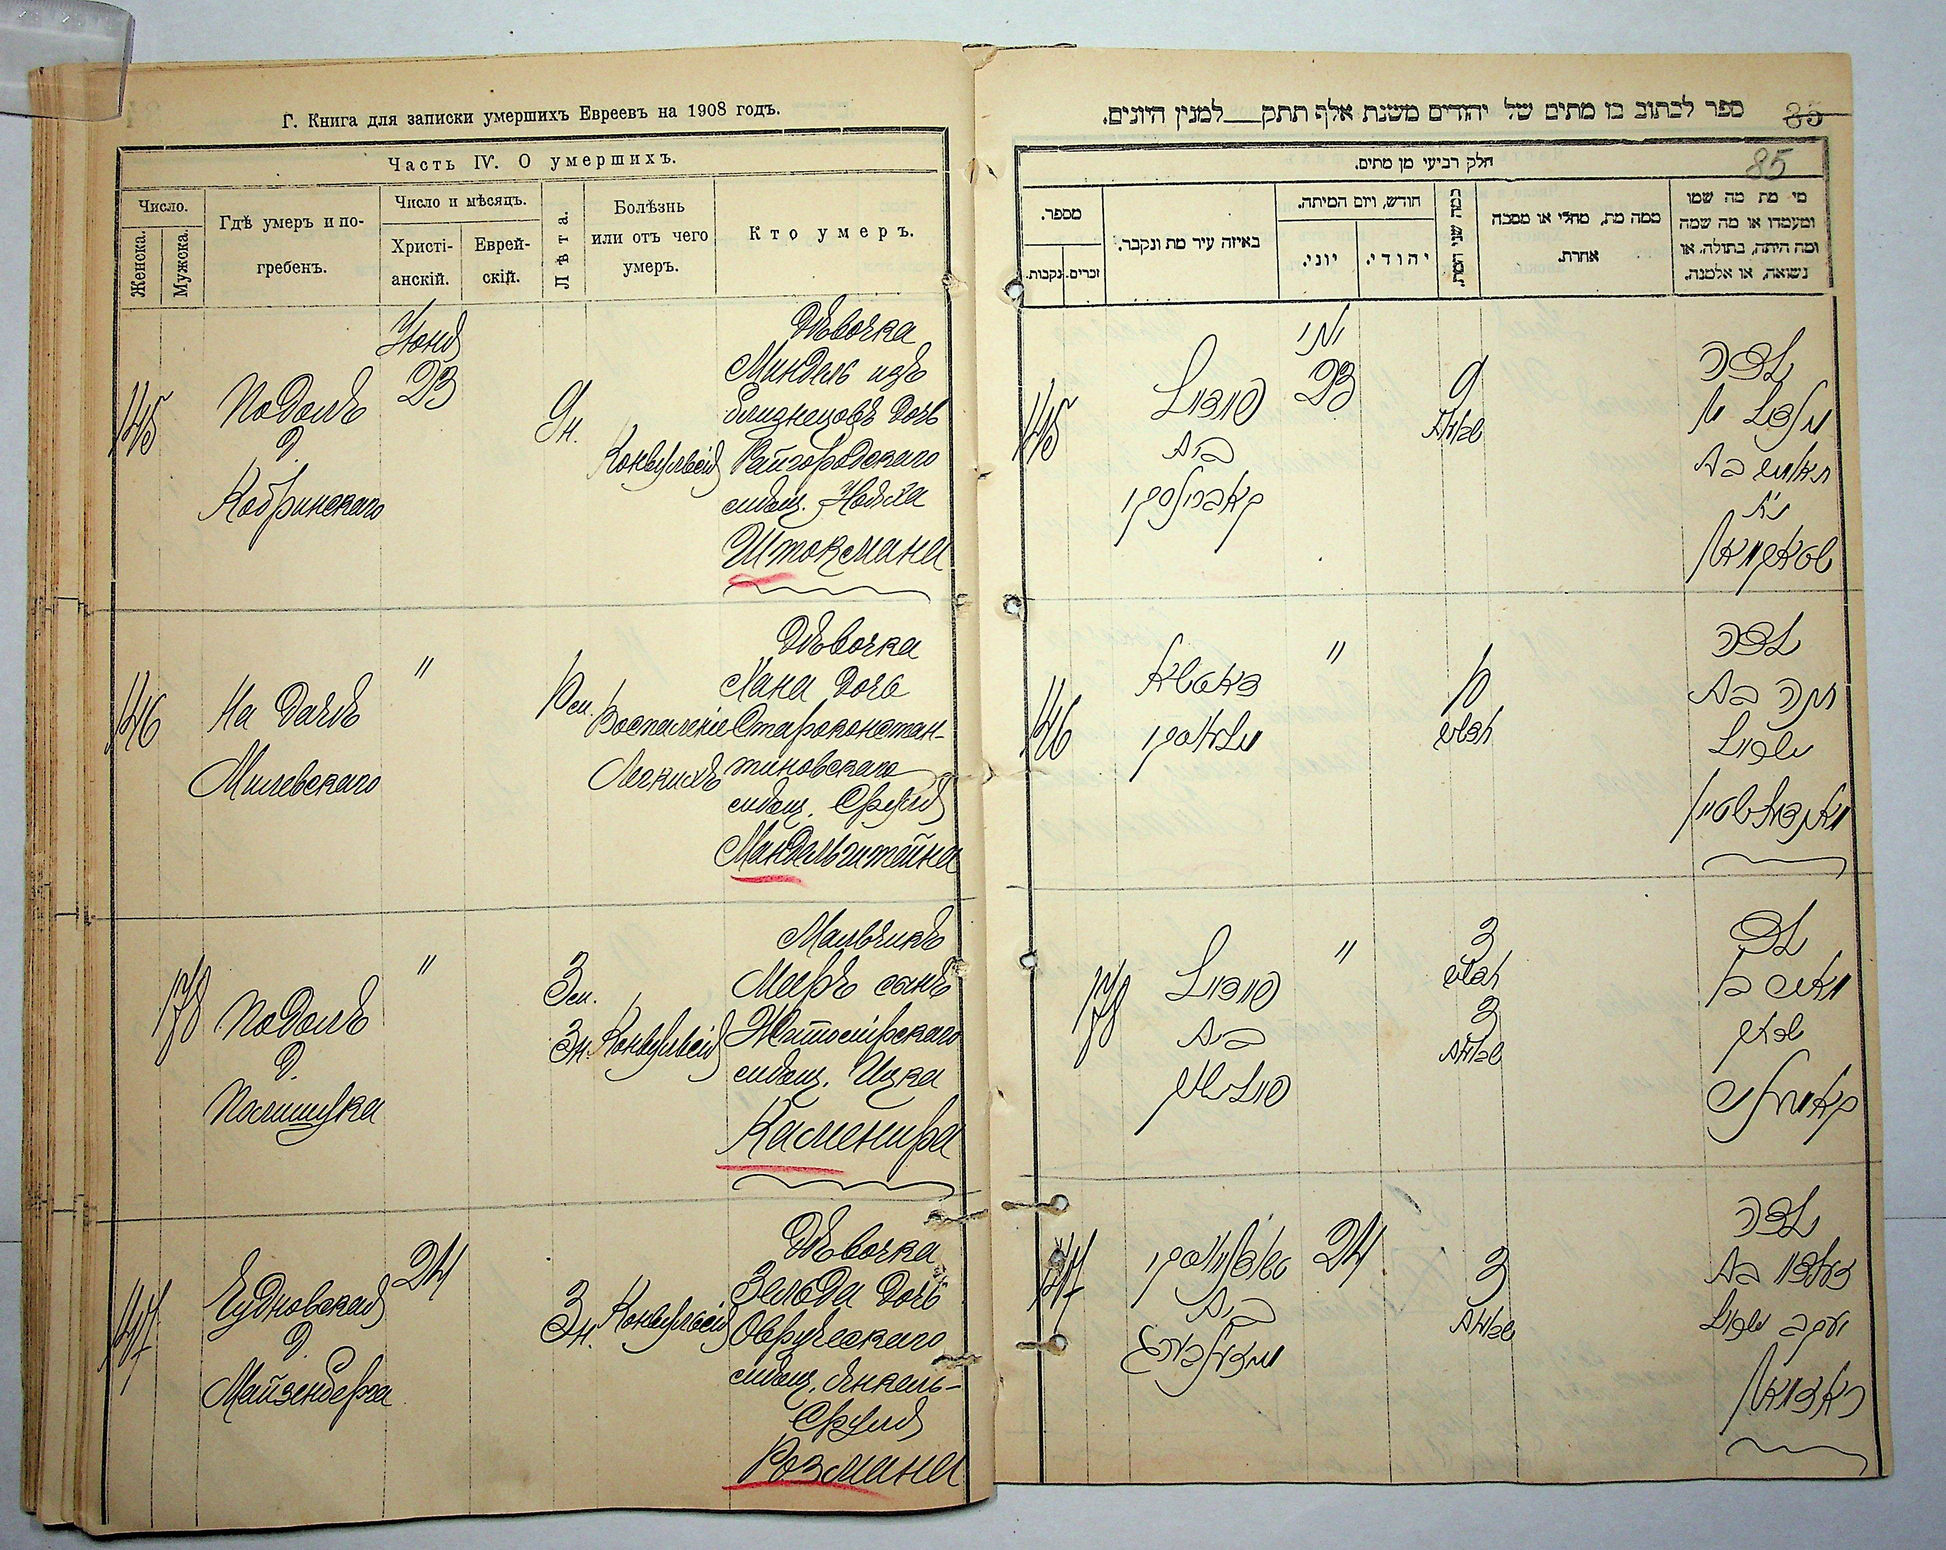 Г. Книга для записки умершихъ Евреевъ на 1908 годъ.
Часть IV. О умершихъ.
Число.
Женска.
Мужска.
Гдѣ умеръ и по-
гребенъ.
Число и мѣсяцъ.
Христі-
анскій.
Еврей-
скій.
Лѣта.
Болѣзнь
или отъ чего
умеръ.
Кто умеръ.
145
Подолъ
д.
Кобринскаго
Іюня
23
9 н.
Конвульсія
Дѣвочка
Миндель изъ
близнецовъ дочь
Райгородскаго
мѣщ. Нойха
Штокмана
146
На дачѣ
Милевскаго
"
Воспаленіе
Легкихъ
Дѣвочка
Хана дочь
Староконстан-
тиновскаго
мѣщ. Сруля
Мандельштейна
178
Подолъ
д.
"
3 м.
3 н.
Конвульсія
Мальчикъ
Мееръ сынъ
Житомірскаго
мѣщ. Ицка
Каменира
147
Чудновская
д.
Майзенберга
24
3 н.
Конвульсія
Дѣвочка
Зельда дочь
Овручскаго
мѣщ. Янкель-
Сруля
Розмана
ספר לכתוב בו מתים של יהודים משנת אלף תתק___למנין היונים.
85
85
חלק רביעי מן מתים.
מספר.
נקבות.
זכרים.
באיזה עיר מת ונקבר.
חודש, ויום המיתה.
יוני.
יהודי.
כמה שני המת.
ממה מת, מחלי או מסבה
אחרת.
מי מת מה שמו
ומעמדו או מה שמה
ומה היתה, בתולה, או
נשואה, או אלמנה.
145
פודאל
בית
קאברינסקי
יוני
23
9
שבועות
ילדה
146
דאטשא
מילעווסקי
"
חדשים
ילדה
חנה בת
ישרול
מאנדעלשטיין
178
פודאל
בית
"
3
חדשים
3
שבועות
ילד
מאיר בן
איצק
קאמעניר
147
טשודנאווסקי
בית
מייזענבערג
24
3
שבועות
ילדה
זעלדא בת
יעקב ישרול
ראזמאן